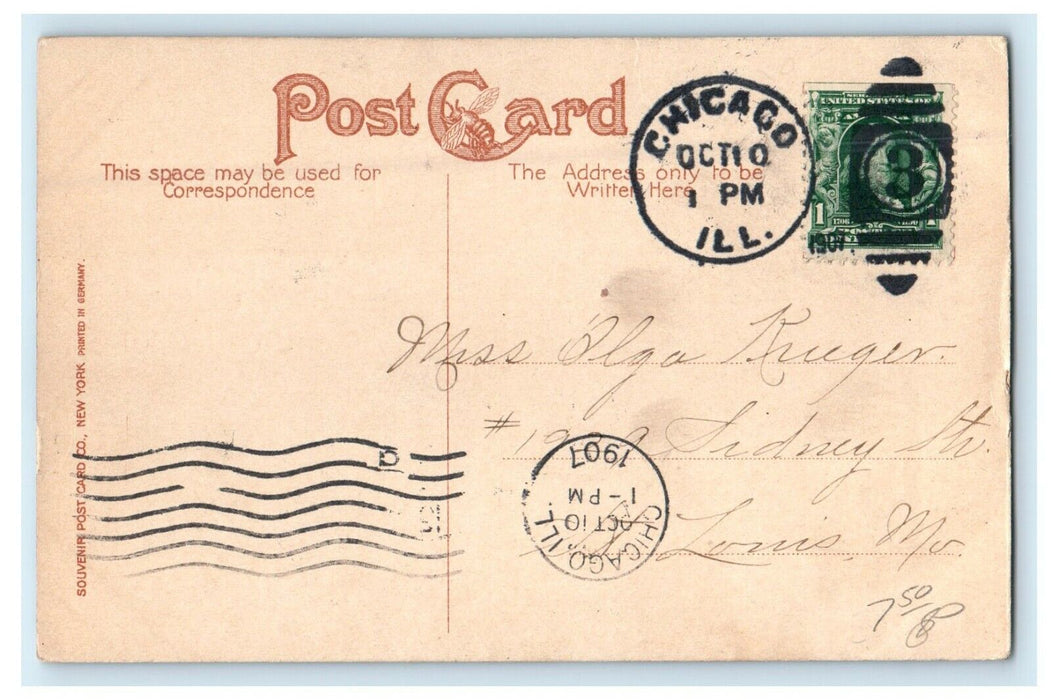 Post Card
This space may be used for
Correspondence
The Address only to be
Written Here
CHICAGO
OCT 10
1 PM
ILL.
1907
UNITED STATES OF
1
3
Miss Olga Krueger.
Sidney Str.
St. Louis, Mo.
CHICAGO, ILL.
OCT 10
1-PM
1907
SOUVENIR POST CARD CO., NEW YORK PRINTED IN GERMANY.
7 50